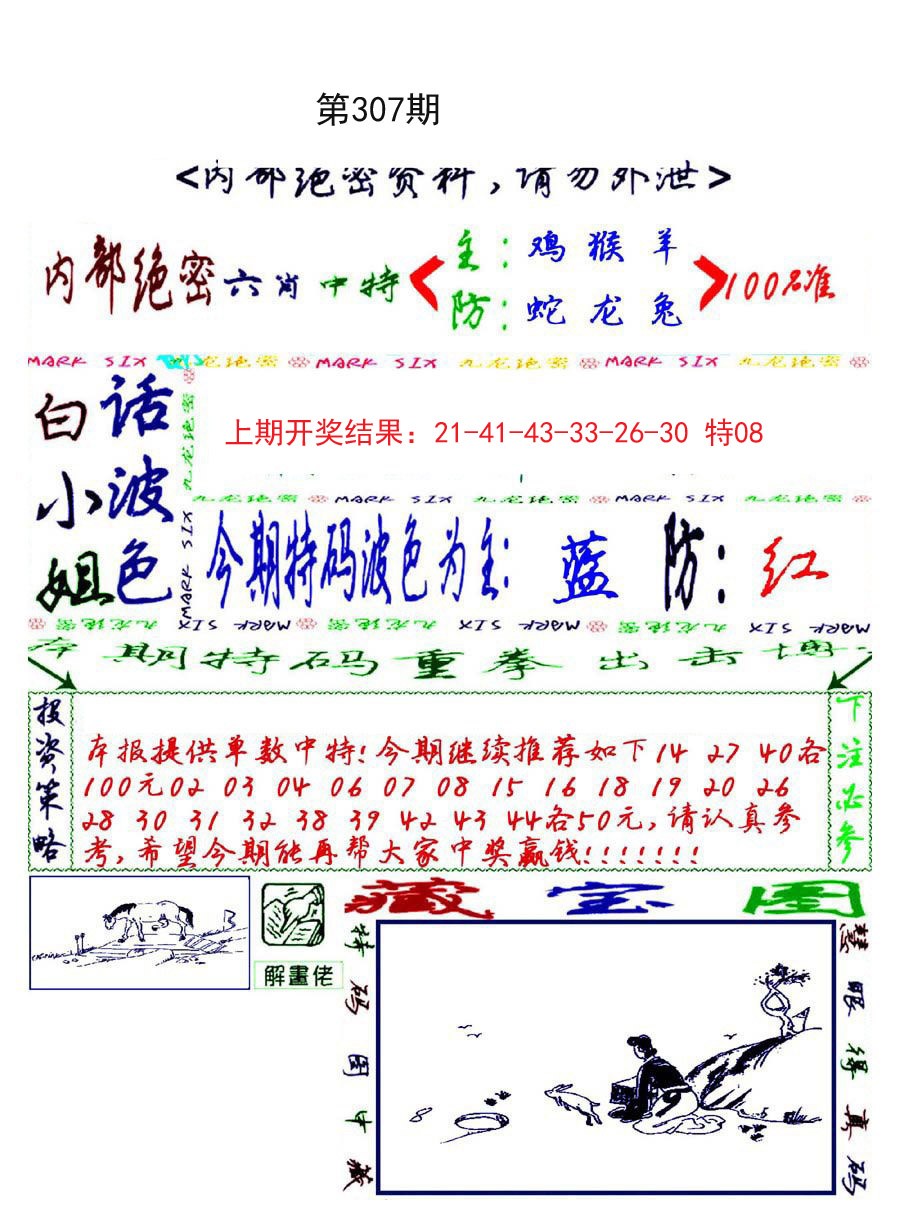 第307期
<内部绝密资料,请勿外泄>
内部绝密六肖中特
主:鸡猴羊
防:蛇龙兔
100%准
MARK SIX 九龙绝密 MARK SIX 九龙绝密 MARK SIX 九龙绝密
白小姐
话波色
九龙绝密
MARK SIX
上期开奖结果: 21-41-43-33-26-30 特08
九龙绝密 MARK SIX 九龙绝密 MARK SIX 九龙绝密
今期特码波色为主: 蓝 防: 红
九龙绝密 MARK SIX 九龙绝密 MARK SIX 九龙绝密 MARK SIX
本期特码重拳出击博
投资策略
本报提供单数中特!今期继续推荐如下14 27 40各
100元02 03 04 06 07 08 15 16 18 19 20 26
28 30 31 32 38 39 42 43 44各50元,请认真参
考,希望今期能再帮大家中奖赢钱!!!!!!!
下注必参
解畫佬
藏宝图
特码图中藏
慧眼得真码